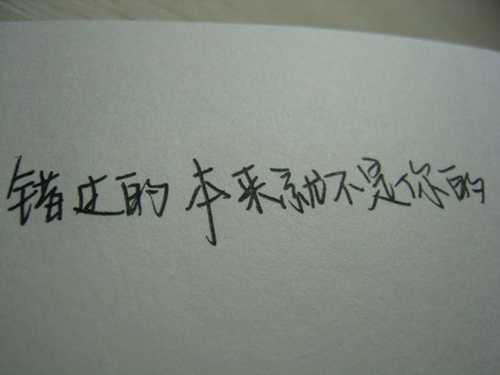 错过的 本来就不是你的